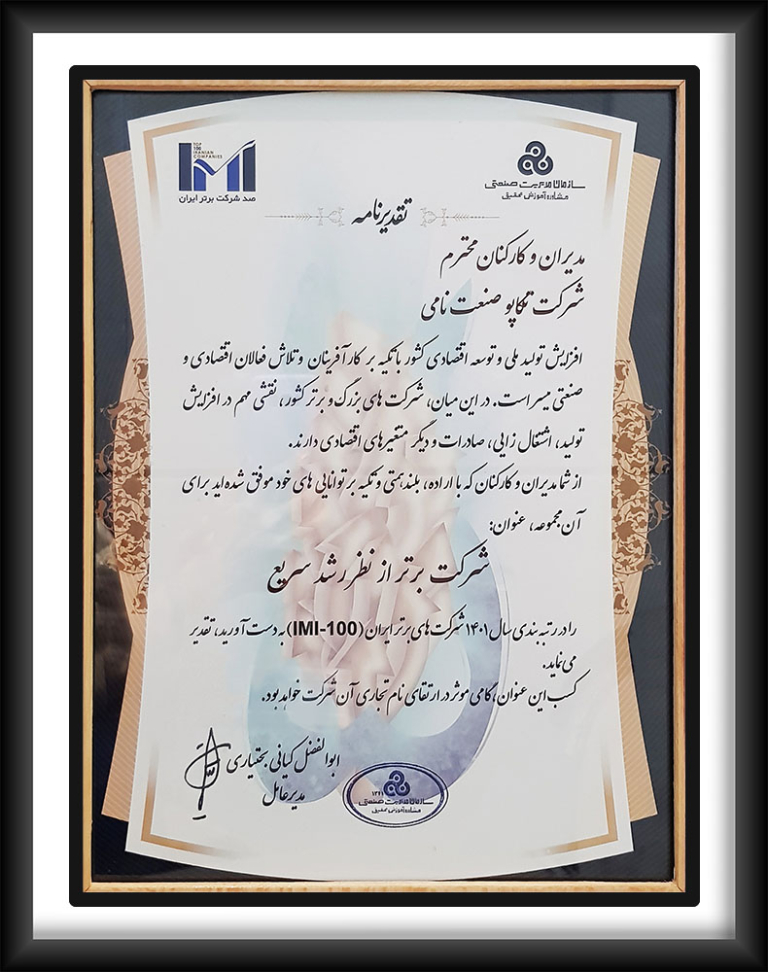 TOP
100
IRANIAN
COMPANIES
IMI
صد شرکت برتر ایران
سازمان مدیریت صنعتی
مشاوره آموزش تحقیق
تقدیرنامه
مدیران و کارکنان محترم
شرکت تکاپو صنعت نامی
افزایش تولید ملی و توسعه اقتصادی کشور با تکیه بر کارآفرینان و تلاش فعالان اقتصادی و
صنعتی میسر است. در این میان، شرکت های بزرگ و برتر کشور، نقشی مهم در افزایش
تولید، اشتغال زایی، صادرات و دیگر متغیرهای اقتصادی دارند.
از شما مدیران و کارکنان که با اراده، بلندهمتی و تکیه بر توانایی های خود موفق شده اید برای
آن مجموعه، عنوان:
شرکت برتر از نظر رشد سریع
را در رتبه بندی سال ۱۴۰۱ شرکت های برتر ایران (IMI-100) به دست آورید، تقدیر
می نماید.
کسب این عنوان، گامی موثر در ارتقای نام تجاری آن شرکت خواهد بود.
ابوالفضل کیانی بختیاری
مدیرعامل
۱۳۴۱
سازمان مدیریت صنعتی
مشاوره آموزش تحقیق